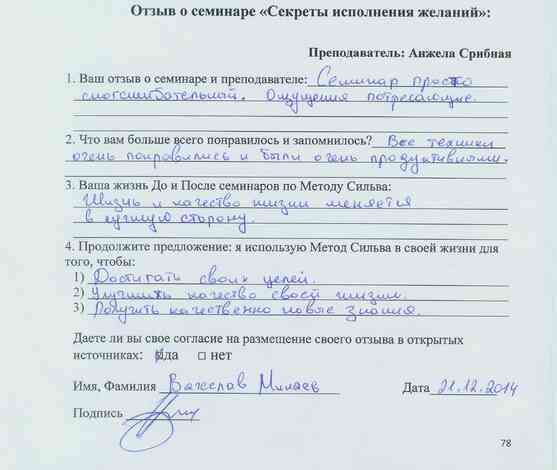 Отзыв о семинаре «Секреты исполнения желаний»:
Преподаватель: Анжела Срибная
1. Ваш отзыв о семинаре и преподавателе: Семинар просто
сногсшибательный. Ощущения потрясающие.
2. Что вам больше всего понравилось и запомнилось? Все техники
очень понравились и были очень продуктивными.
3. Ваша жизнь До и После семинаров по Методу Сильва:
Жизнь и качество жизни меняется
в лучшую сторону.
4. Продолжите предложение: я использую Метод Сильва в своей жизни для
того, чтобы:
1) Достигать своих целей.
2) Улучшить качество своей жизни.
3) Получить качественно новые знания.
Даете ли вы свое согласие на размещение своего отзыва в открытых
источниках: да нет
Имя, Фамилия Вячеслав Дата 21.12.2014
Подпись
78